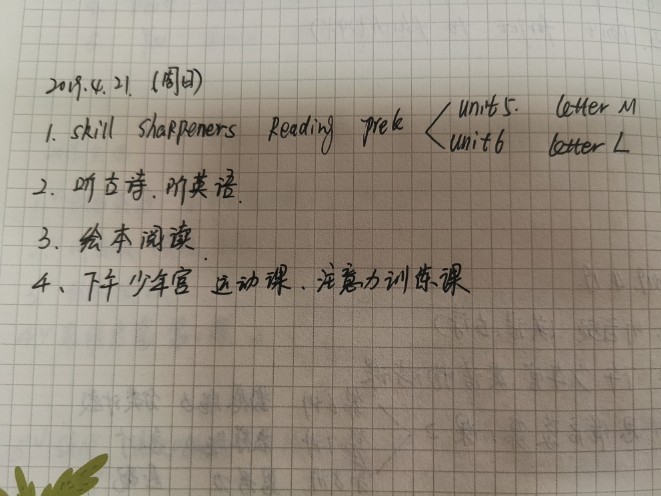 2019.4.21.(周日)
1. skill sharpeners Reading prek unit 5. letter M
unit 6 letter L
2. 听古诗、听英语.
3. 绘本阅读.
4、下午少年宫 运动课、注意力训练课